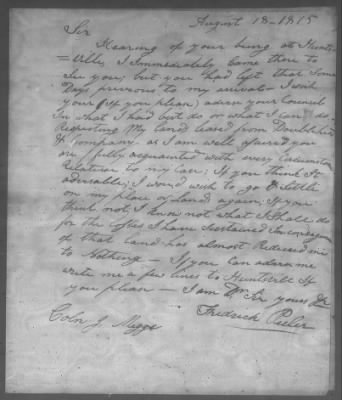 August 18-1815
Sir
Hearing of your being at Hunts
=ville, I Immediately Came there to
See you; but you had left that Some
Days previous to my arrival - I wish
your (If you please) advise your Counsel
In what I had best do or what I can do
Respecting My Land leased from Doublehead
& Company as I am well assured you
are fully acquainted with every Circumstance
Relative to my Case; If you think It
adviseable; I would wish to go & Settle
on my place or Land again; If you
think not, I Know not what I Shall do
for the Losses I have Sustained In consequence
of that Land has almost Reduced me
to Nothing - If you Can advise me
write me a few lines to Huntsville If
you please - I am Dr Sir yours &c
Fredrick Peeler
Coln J. Meggs